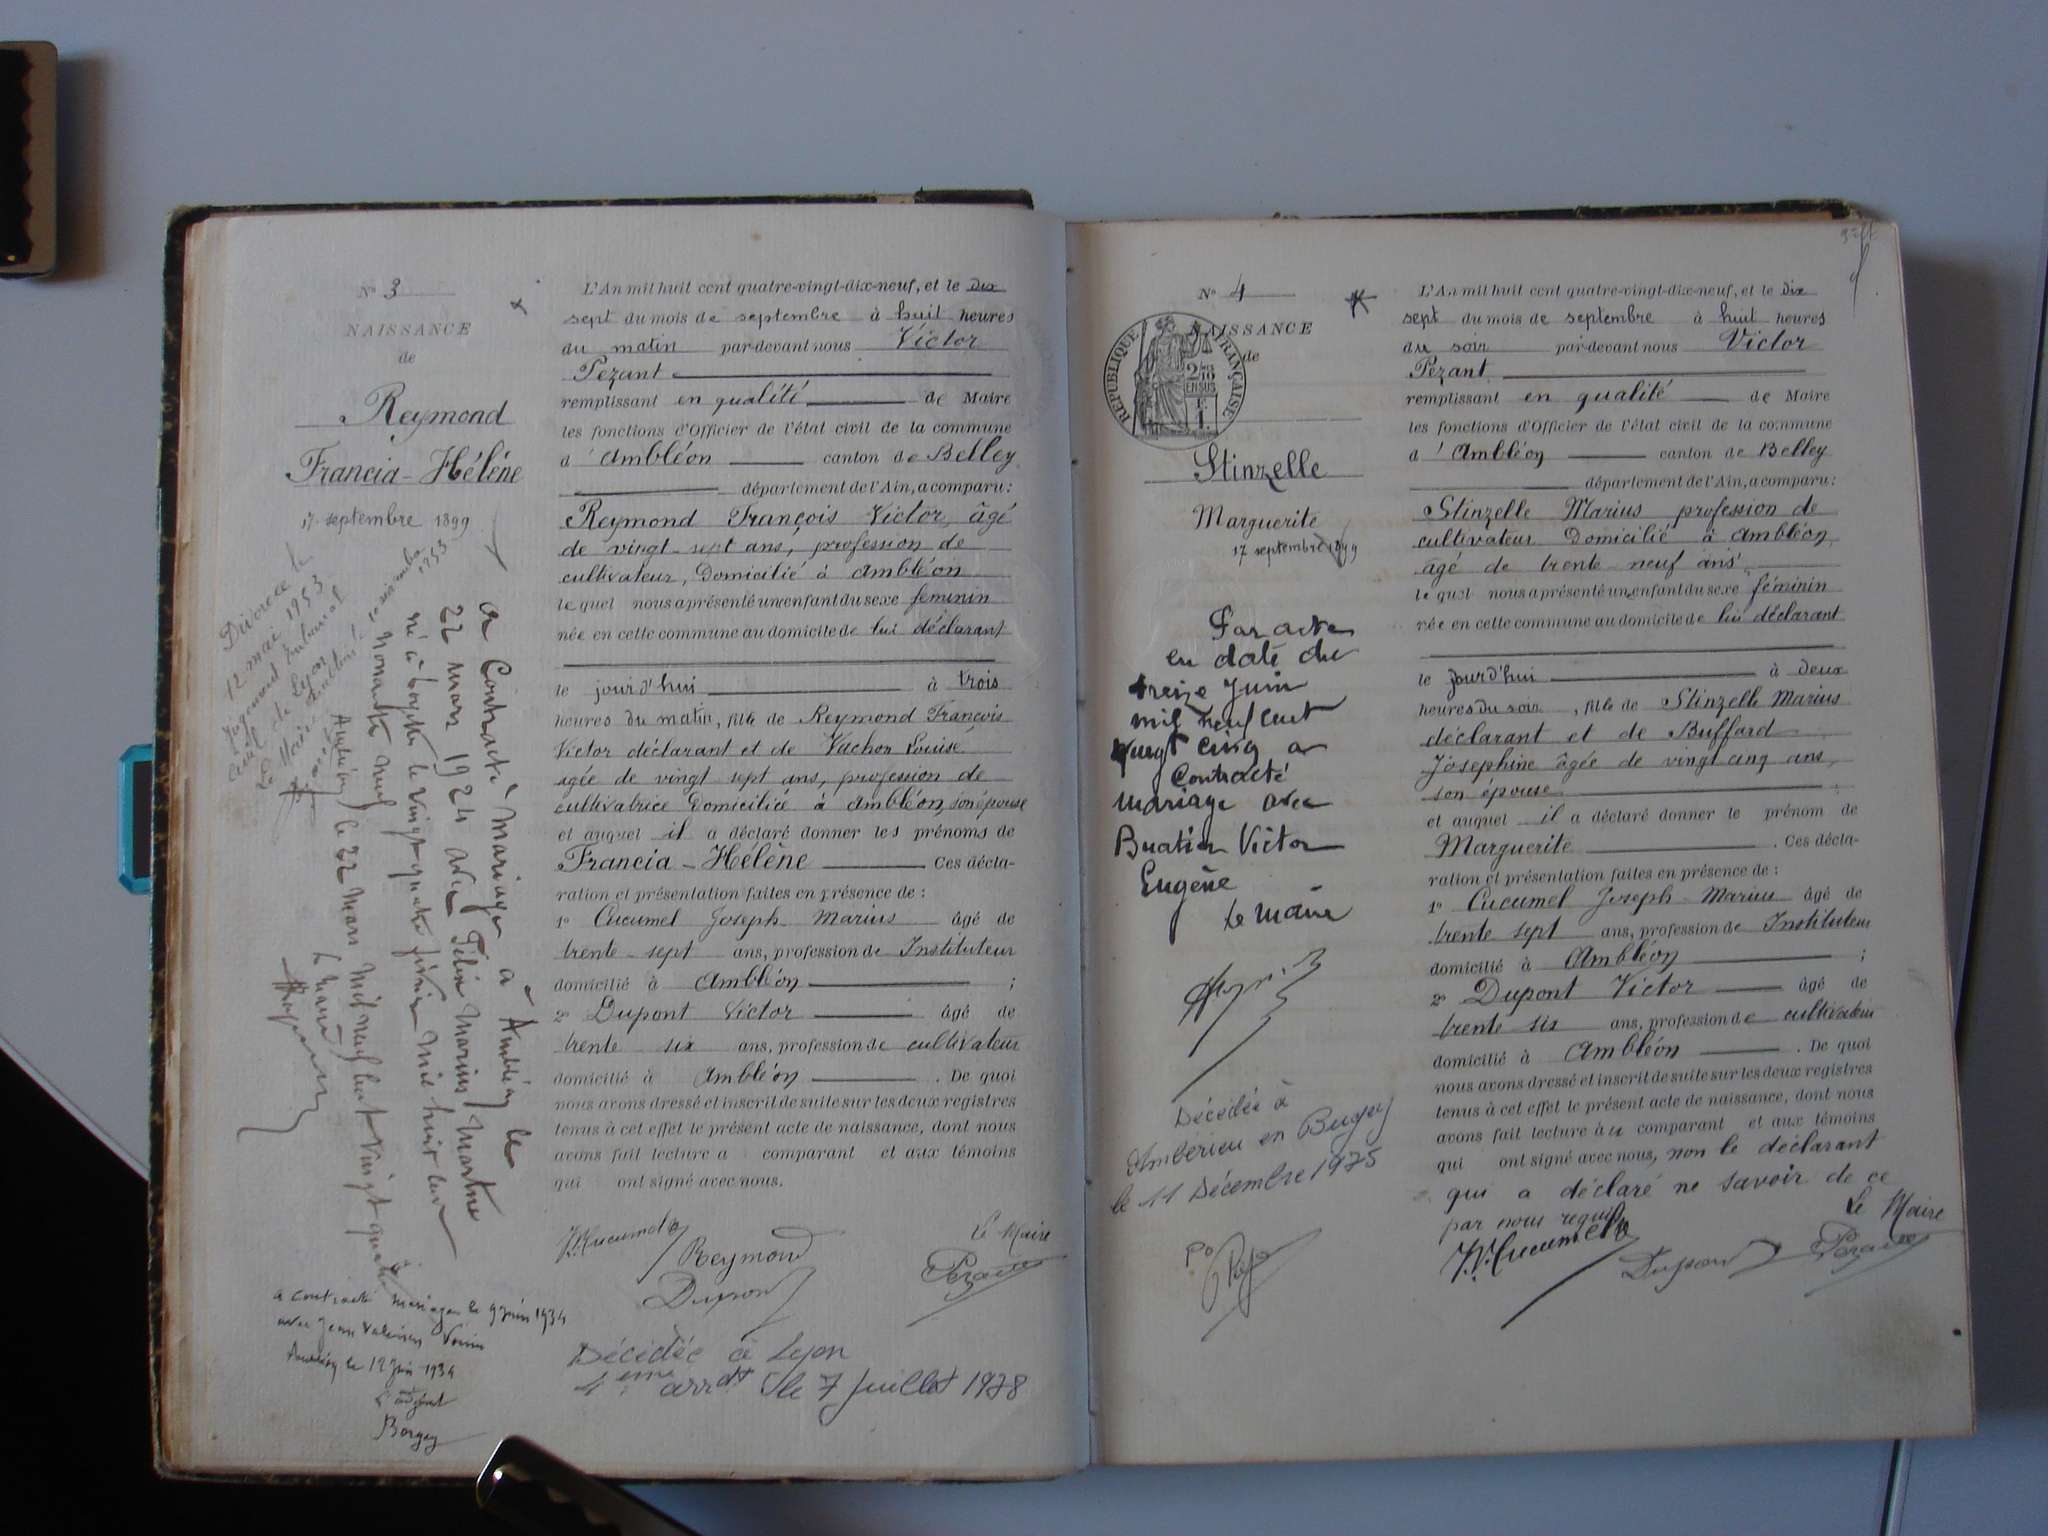 N° 3
NAISSANCE
de
Reymond
Francia-Hélène
17 septembre 1899
Divorcée le
12 mai 1953
jugement tribunal
civil de Lyon
Le Maire
le six novembre
1953
a Contracté Mariage à Ambléon le
22 mars 1924 avec Marius
né à le vingt quatre février Mil huit cent
nonante neuf
Ambléon le 22 Mars Mil neuf cent vingt quatre
Le Maire
a contracté mariage le 9 juin 1934
avec Jean
Ambléon le 12 juin 1934
L'adjoint
Borgey
L'An mil huit cent quatre-vingt-dix-neuf, et le dix
sept du mois de septembre à huit heures
du matin par-devant nous Victor
Pezant
remplissant en qualité de Maire
les fonctions d'Officier de l'état civil de la commune
d'Ambléon canton de Belley
département de l'Ain, a comparu :
Reymond François Victor, âgé
de vingt-sept ans, profession de
cultivateur, Domicilié à Ambléon
le quel nous a présenté un enfant du sexe féminin
née en cette commune au domicile de lui déclarant
le jour d'hui à trois
heures du matin, fille de Reymond François
Victor déclarant et de Vachon Louise
agée de vingt sept ans, profession de
cultivatrice Domiciliée à Ambléon, son épouse
et auquel il a déclaré donner les prénoms de
Francia-Hélène Ces décla-
ration et présentation faites en présence de :
1° Cucumel Joseph-Marius âgé de
trente-sept ans, profession de Instituteur
domicilié à Ambléon ;
2° Dupont Victor âgé de
trente six ans, profession de cultivateur
domicilié à Ambléon . De quoi
nous avons dressé et inscrit de suite sur les deux registres
tenus à cet effet le présent acte de naissance, dont nous
avons fait lecture a comparant et aux témoins
qui ont signé avec nous.
Le Maire
J. Cucumel Reymond Pezant
Dupont
Décédée à Lyon
4eme arrdt le 7 Juillet 1978
N° 4
NAISSANCE
de
REPUBLIQUE FRANÇAISE
Stinzelle
Marguerite
17 septembre 1899
Par acte
en date du
treize Juin
mil neuf cent
vingt cinq a
Contracté
mariage avec
Buatier Victor
Eugène
Le maire
Décédée à
Ambérieu en Bugey
le 11 Décembre 1975
L'An mil huit cent quatre-vingt-dix-neuf, et le dix
sept du mois de septembre à huit heures
du soir par-devant nous Victor
Pezant
remplissant en qualité de Maire
les fonctions d'Officier de l'état civil de la commune
d'Ambléon canton de Belley
département de l'Ain, a comparu :
Stinzelle Marius profession de
cultivateur Domicilié à Ambléon,
âgé de trente-neuf ans
le quel nous a présenté un enfant du sexe féminin
née en cette commune au domicile de lui déclarant
le jour d'hui à deux
heures du soir, fille de Stinzelle Marius
déclarant et de Buffard
Joséphine âgée de vingt cinq ans,
son épouse
et auquel il a déclaré donner le prénom de
Marguerite . Ces décla-
ration et présentation faites en présence de :
1° Cucumel Joseph-Marius âgé de
trente sept ans, profession de Instituteur
domicilié à Ambléon ;
2° Dupont Victor âgé de
trente six ans, profession de cultivateur
domicilié à Ambléon . De quoi
nous avons dressé et inscrit de suite sur les deux registres
tenus à cet effet le présent acte de naissance, dont nous
avons fait lecture au comparant et aux témoins
qui ont signé avec nous, non le déclarant
qui a déclaré ne savoir de ce
par nous requis
Le Maire
J. Cucumel Dupont Pezant